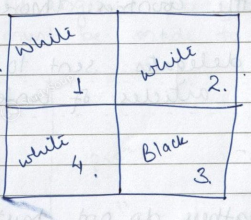 White
1
White
2.
White
4.
Black
3.